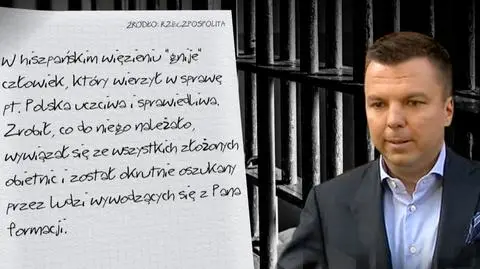 ŹRÓDŁO: RZECZPOSPOLITA
W hiszpańskim więzieniu "gnije"
człowiek, który wierzył w sprawę
pt. Polska uczciwa i sprawiedliwa.
Zrobił, co do niego należało,
wywiązał się ze wszystkich złożonych
obietnic i został okrutnie oszukany
przez ludzi wywodzących się z Pana
formacji.